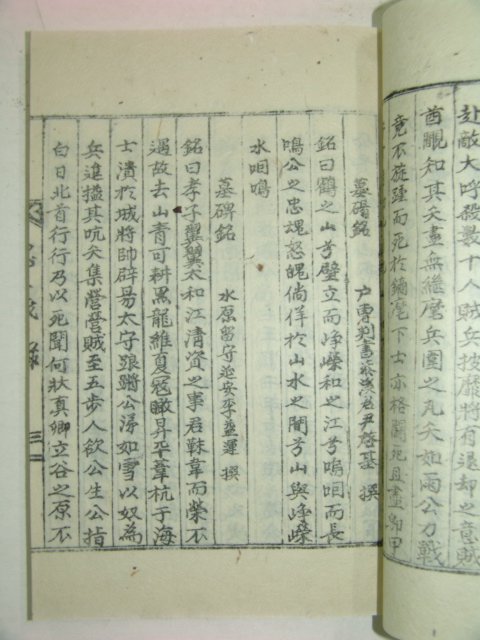 赴敵大呼殺數十人賊兵披靡將有退却之意賊
酋覵知其矢盡無繼麾兵圍之丸矢如雨公力戰
竟不旋踵而死於鏑麾下士亦格鬪死且盡
墓碣銘
户曹判書 尹 撰
銘曰鶴之山兮壁立而崢嶸和之江兮嗚咽而長
鳴公之忠魂怒魄倘佯於山水之間兮山與崢嶸
水咽鳴
墓碑銘
水原留守延安李益運 撰
銘曰孝子翼翼太和江清資之事君韎韋而榮不
遇故去山青可耕黑龍維夏冦瞰昇平葦杭于海
士潰於城將帥辟易太守踉蹡公涕如雪以奴為
兵進搤其吭矣集營營賊至五步人欲公生公指
白日北首行行乃以死聞何狀真卿立谷之原不